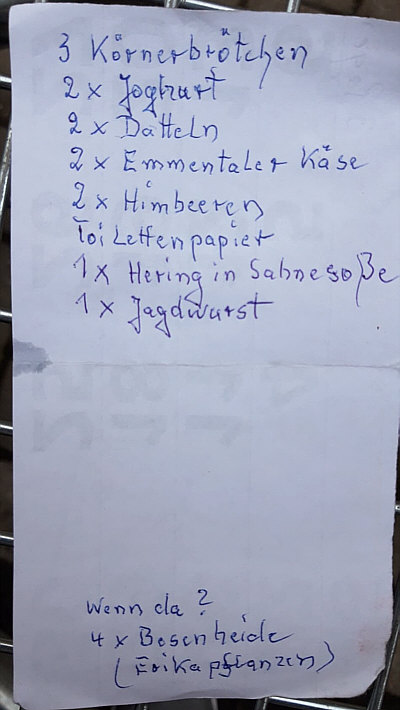 3 Körnerbrötchen
2 x Joghurt
2 x Datteln
2 x Emmentaler Käse
2 x Himbeeren
Toilettenpapier
1 x Hering in Sahnesoße
1 x Jagdwurst
Wenn da?
4 x Besenheide
(Erikapflanzen)